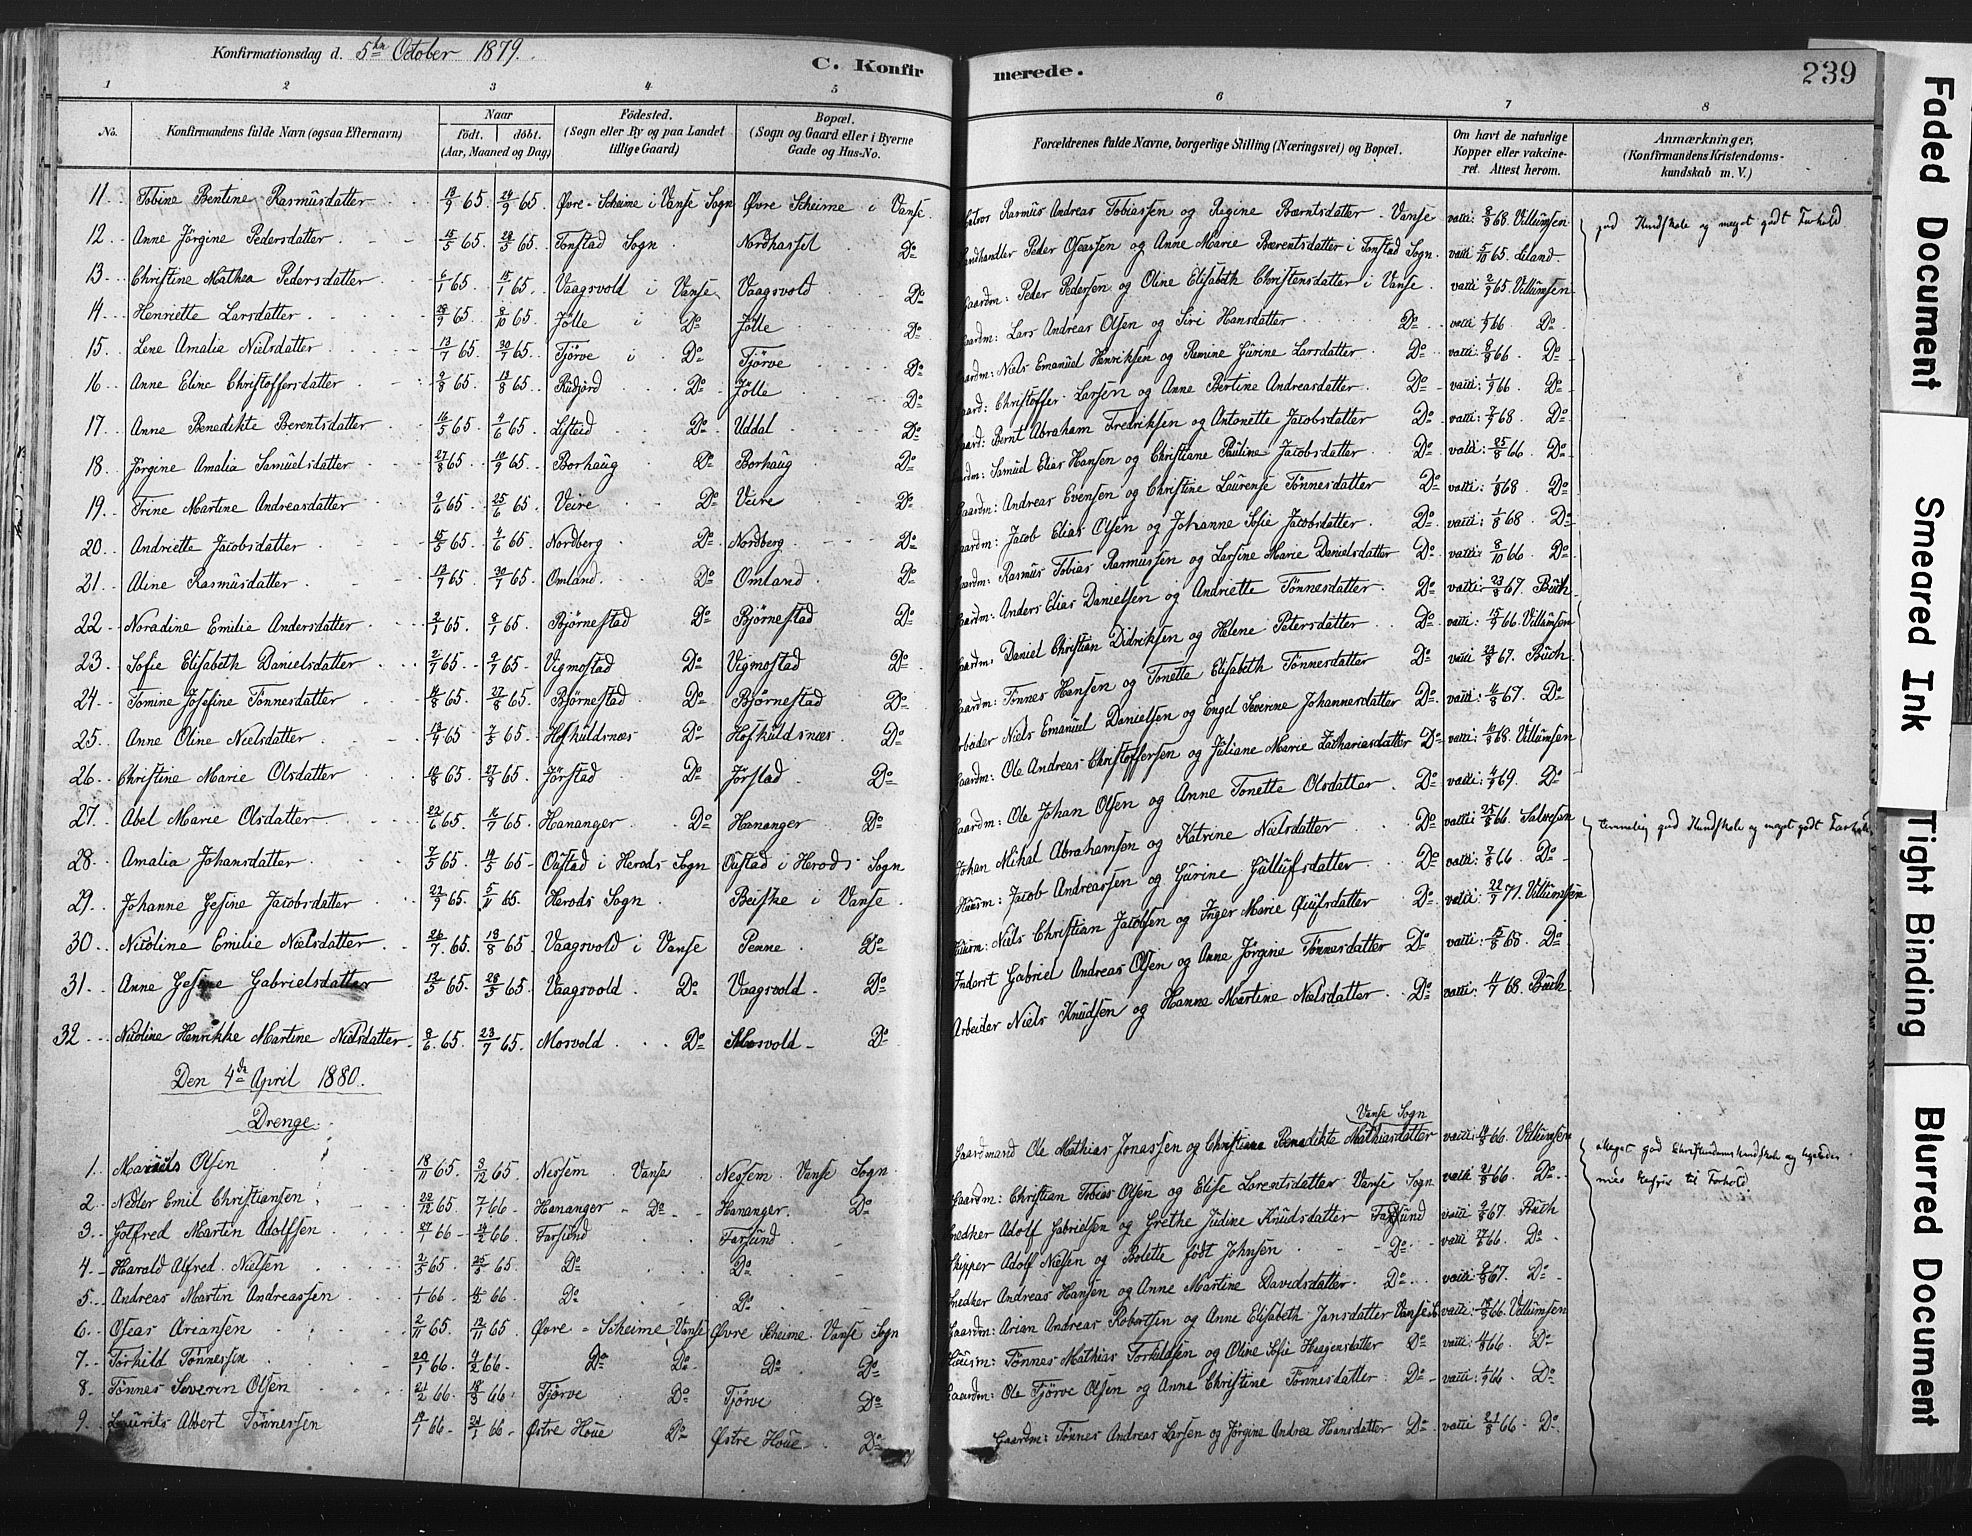 Konfirmationsdag d. 5te October 1879.
C. Konfirmerede.
239
1 2 3 4 5 6 7 8
No. Konfirmandens fulde Navn (ogsaa Efternavn) Naar födt. döbt. (Aar, Maaned og Dag) Födested. (Sogn eller By og paa Landet tillige Gaard) Bopæl. (Sogn og Gaard eller i Byerne Gade og Hus-No. Forældrenes fulde Navne, borgerlige Stilling (Næringsvei) og Bopæl. Om havt de naturlige Kopper eller vakcineret. Attest herom. Anmærkninger, (Konfirmandens Kristendomskundskab m. V.)
11 Tobine Bentine Rasmusdatter 13/9 65 24/9 65. Øvre-Skeime i Vanse Sogn Øvre Skeime i Vanse. Rasmus Andreas Tobiassen og Regine Berntsdatter Vanse vacc: 68. Villumsen god Kundskab og meget godt Forhold
12 Anne Jörgine Pedersdatter 65. 28/5 65. Tonstad Sogn Nordhassel Do Landhandler Peder Oseassen og Anne Marie Bærentsdatter i Tonstad Sogn. vacc: 5/10 65. Liland
13. Christine Mathea Pedersdatter 6/1 65. 15/1 65. Vaagsvold i Vanse Vaagsvold Do Gaardm: Peder Pedersen og Oline Elisabeth Christensdatter i Vanse. vacc: 65. Villumsen
14 Henriette Larsdatter 65. 8/10 65. Jölle i Do Jölle Do Gaardm: Lars Andreas Olsen og Siri Hansdatter Do vacc: 66 Do
15. Lene Amalia Nielsdatter 13/7 65. 30/7 65. Tjörve i Do Tjörve Do Gaardm: Niels Emanuel Henriksen og Ramine Gurine Larsdatter Do vacc: 66. Do
16 Anne Eline Christoffersdatter 65. 13/8 65. Rudjord Do Jölle Do Gaard: Christoffer Larsen og Anne Bertine Andreasdatter. Do vacc: 1/9 66. Do
17 Anne Benedikte Berentsdatter 16/5 65. 65. Listeid Do Uddal Do Gaard: Bernt Abraham Fredriksen og Antonette Jacobsdatter Do vacc: 68. Do
18. Jörgine Amalia Samuelsdatter 27/8 65. 10/9 65. Borhaug Do Borhaug Do Samuel Elias Hansen og Christiane Pauline Jacobsdatter Do vacc: 25/8 66. Do
19. Trine Martine Andreasdatter 2/6 65. 25/6 65. Veire Do Veire Do Gaardm: Andreas Evensen og Christine Laurense Tönnesdatter Do vacc: 1/8 68. Do
20. Andriette Jacobsdatter 65. 4/6 65. Nordberg Do Nordberg Do Gaardm: Jacob Elias Olsen og Johanne Sofie Jacobsdatter. Do vacc: 1/8 68. Do
21. Aline Rasmusdatter 65. 30/7 65. Omland. Do Omland Do Gaardm: Rasmus Tobias Rasmussen og Larsine Marie Danielsdatter Do vacc: 8/10 66. Do
22 Noradine Emilie Andersdatter 2/1 65. 8/1 65. Björnestad Do Björnestad Do Gaardm: Anders Elias Danielsen og Andriette Tönnesdatter. Do vacc: 23/8 67. Buch
23. Sofie Elisabeth Danielsdatter 2/7 65. 9/7 65. Vigmostad Do Vigmostad Do Gaardm. Daniel Christian Didriksen og Helene Petersdatter. Do vacc: 66. Villumsen
24. Tomine Josefine Tönnesdatter 65. 27/8 65. Björnestad Do Björnestad Do Gaardm: Tönnes Hansen og Tonette Elisabeth Tönnesdatter Do vacc: 67. Buch
25. Anne Oline Nielsdatter 65 65. Hofkuldsnæs Do Hofkuldsnæs Do Arbeider Niels Emanuel Danielsen og Engel Severine Johannesdatter Do vacc: 67. Do
26. Christine Marie Olsdatter 65. 27/8 65. Jörstad Do Jörstad Do Gaardm: Ole Andreas Christoffersen og Juliane Marie Zachariasdatter Do vacc: 68. Villumsen
27. Abel Marie Olsdatter 22/6 65. 16/7 65. Hananger Do Hananger Do Gaardm: Ole Johan Olsen og Anne Tonette Olsdatter. Do vacc: 69. Do
28. Amalia Johansdatter 7/5 65. 14/5 65. Oustad i Herods Sogn Oustad i Herods Sogn Johan Mikal Abrahamsen og Katrine Nielsdatter Do vacc: 25/8 66. Salvesen temmelig god Kundskab og meget godt Forhold
29. Johanne Gesine Jacobsdatter 65. 5/11 65. Herods Sogn. Beiske i Vanse. Huusm: Jacob Andreassen og Gurine Gullufsdatter Do vacc: 66 Do
30. Nicoline Emilie Nielsdatter 26/7 65. 13/8 65. Vaagsvold i Vanse Penne Do Huusm: Niels Christian Jacobsen og Inger Marie Quifsdatter Do vacc: 22/7 71. Villumsen
31. Anne Gesine Gabrielsdatter 65. 28/5 65. Vaagsvold. Do Vaagsvold. Do Inderst Gabriel Andreas Olsen og Anne Jörgine Tönnesdatter Do vacc: Do
32. Nicoline Henrikke Martine Nielsdatter 8/6 65. 23/7 65. Mosvold Do Mosvold Do Arbeider Niels Knudsen og Hanne Martine Nielsdatter. Do vacc: 68. Buch
Den 4de April 1880.
Drenge.
1. Olsen 18/11 65. 65. Nessem Vanse Nessem Vanse Sogn Gaardmand Ole Mathias Jonassen og Christiane Benedikte Mathiasdatter Vanse Sogn vacc: 66. Villumsen Meget god Christendomskundskab og
2. Neder Emil Christiansen 22/12 65. 7/1 66. Hananger Do Hananger. Do Gaardm: Christian Tobias Olsen og Elise Lorentsdatter Vanse Sogn vacc: 21/8 66. Do
3. Gotfred Martin Adolfsen 66 66. Farsund Farsund Snedker Adolf Gabrielsen og Grethe Judine Knudsdatter Farsund vacc: 67. Buch
4. Harald Alfred Nielsen 65. 25/5 65. Do Do Skipper Adolf Nielsen og Bolette født Johnsen Do vacc: 66. Do
5. Andreas Martin Andreassen 66. 66. Do Do Snedker Andreas Hansen og Anne Martine Davidsdatter. Do vacc: 67. Do
6. Oseas Ariansen 2/11 65. 12/11 65. Øvre-Skeime Vanse Øvre Skeime Vanse Sogn Gaardm: Arian Andreas Robertsen og Anne Elisabeth Jansdatter Vanse S. vacc: 66. Villumsen
7. Torkild Tönnessen 20/1 66. 4/2 66. Do Do Do Do Huusm: Tönnes Mathias Torkildsen og Oline Sofie Haagensdatter Do vacc: 66. Do
8. Tönnes Severin Olsen 21/2 66. 18/3 66. Tjörve Do Tjörve Do Gaardm: Ole Tjörve Olsen og Anne Christine Tönnesdatter Do vacc: 66. Do
9. Laurits Albert Tönnessen 66. 66. Østre Houe Do Østre Houe Do Gaardm: Tönnes Andreas Larsen og Jörgine Andrea Hansdatter Do vacc: 21/8 66. Do
Faded Document
Smeared Ink
Tight Binding
Blurred Document